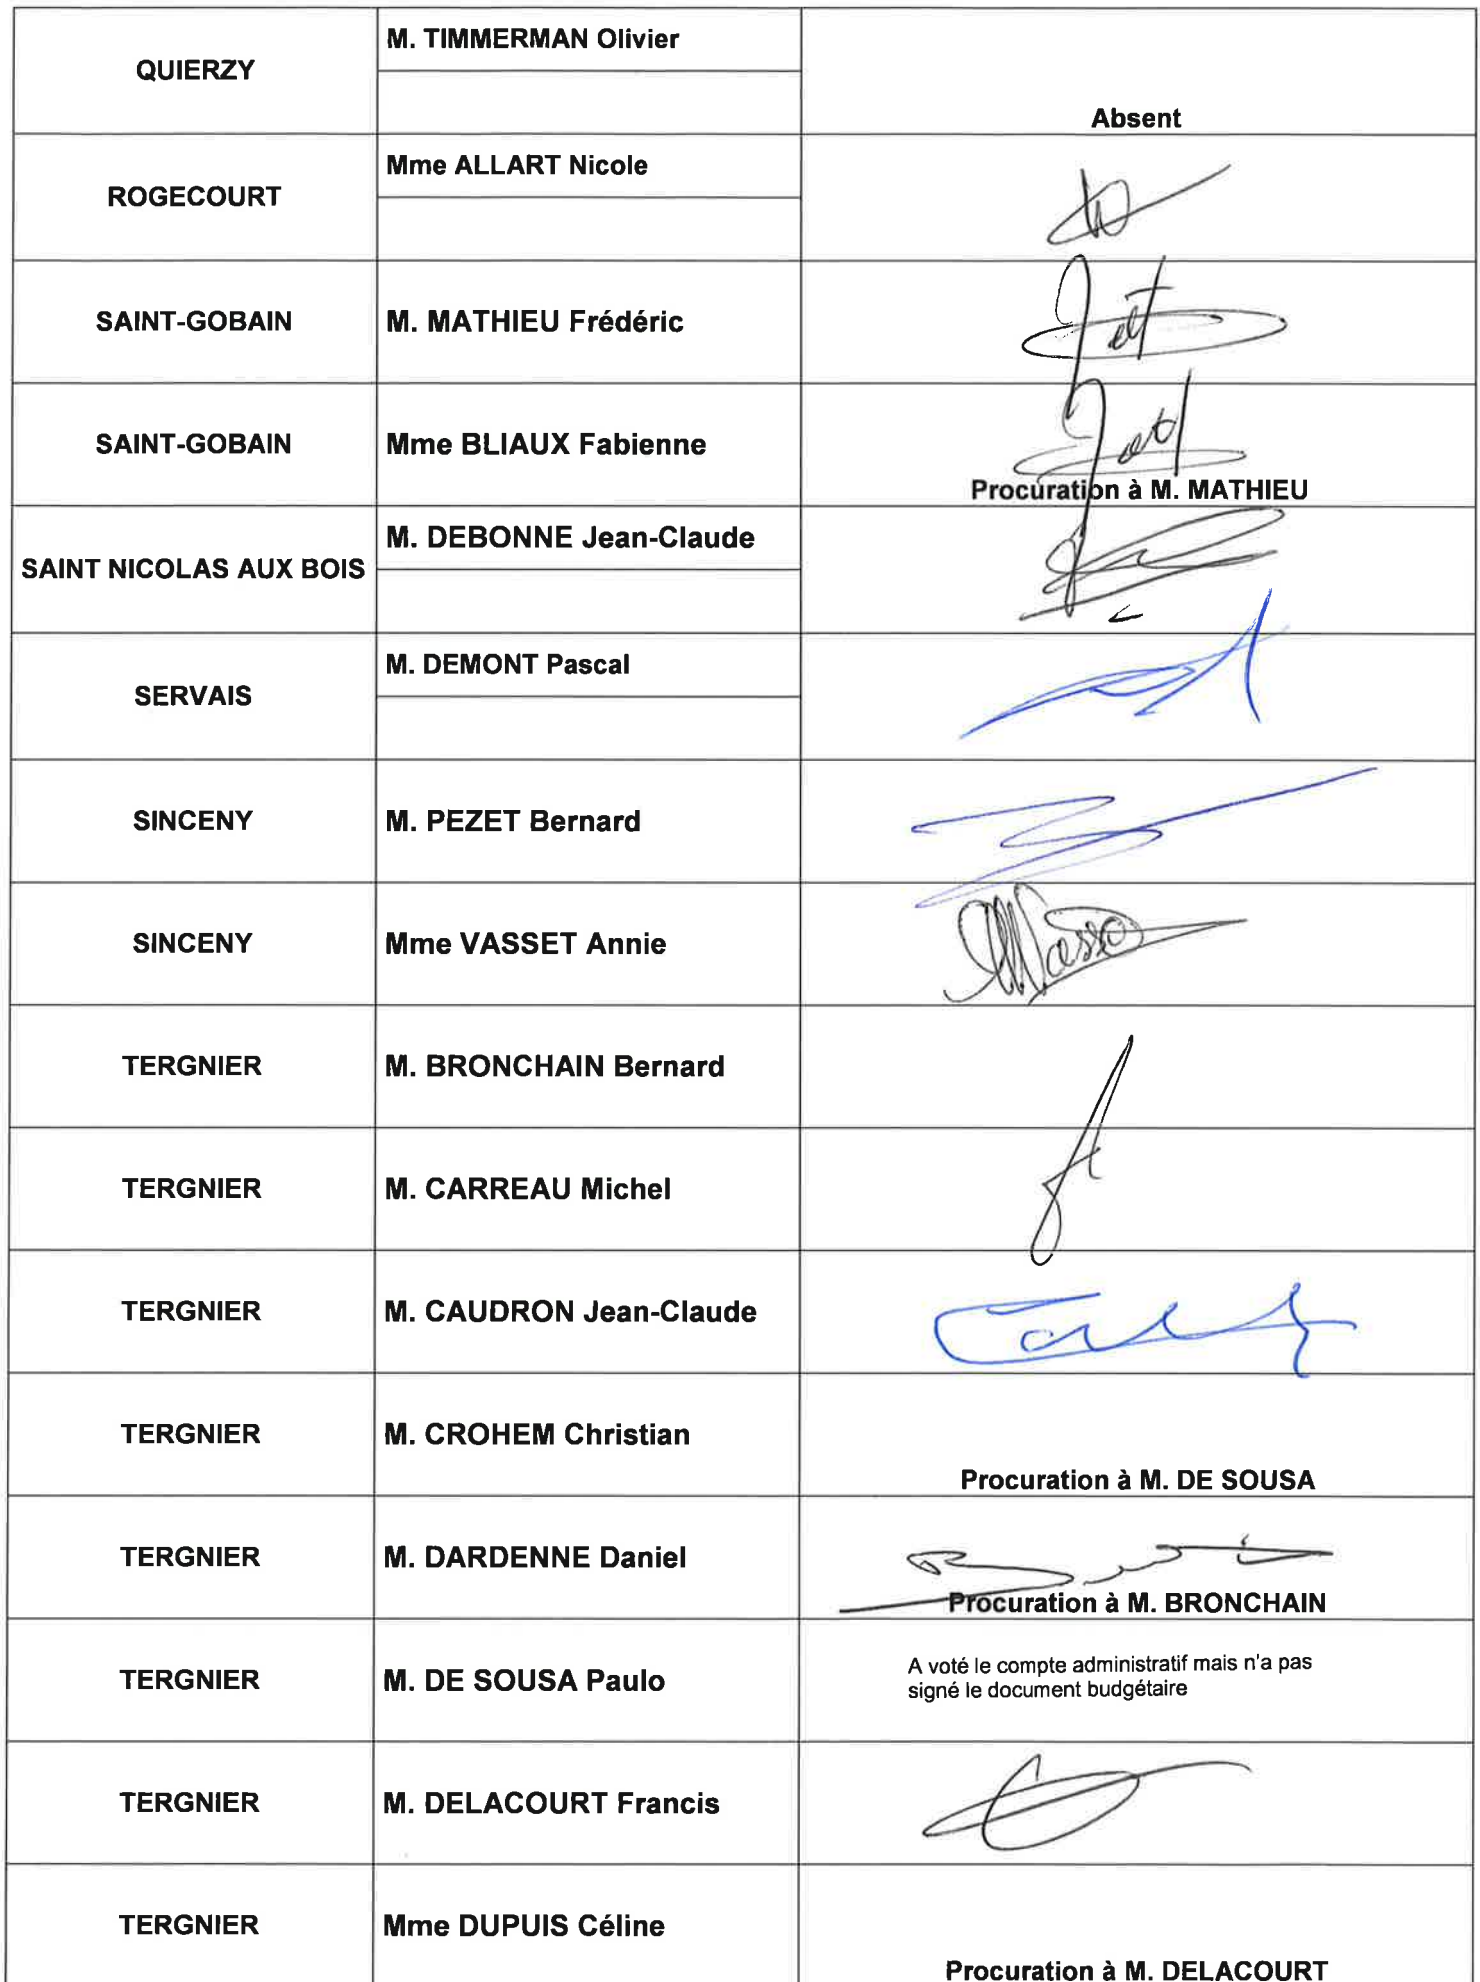 QUIERZY
M. TIMMERMAN Olivier
Absent
ROGECOURT
Mme ALLART Nicole
SAINT-GOBAIN
M. MATHIEU Frédéric
SAINT-GOBAIN
Mme BLIAUX Fabienne
Procuration à M. MATHIEU
SAINT NICOLAS AUX BOIS
M. DEBONNE Jean-Claude
SERVAIS
M. DEMONT Pascal
SINCENY
M. PEZET Bernard
SINCENY
Mme VASSET Annie
TERGNIER
M. BRONCHAIN Bernard
TERGNIER
M. CARREAU Michel
TERGNIER
M. CAUDRON Jean-Claude
TERGNIER
M. CROHEM Christian
Procuration à M. DE SOUSA
TERGNIER
M. DARDENNE Daniel
Procuration à M. BRONCHAIN
TERGNIER
M. DE SOUSA Paulo
A voté le compte administratif mais n'a pas
signé le document budgétaire
TERGNIER
M. DELACOURT Francis
TERGNIER
Mme DUPUIS Céline
Procuration à M. DELACOURT